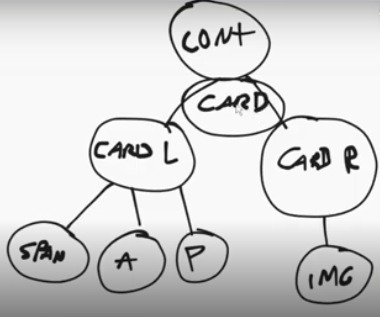 CONT
CARD
CARD L
CARD R
SPAN
A
P
IMG